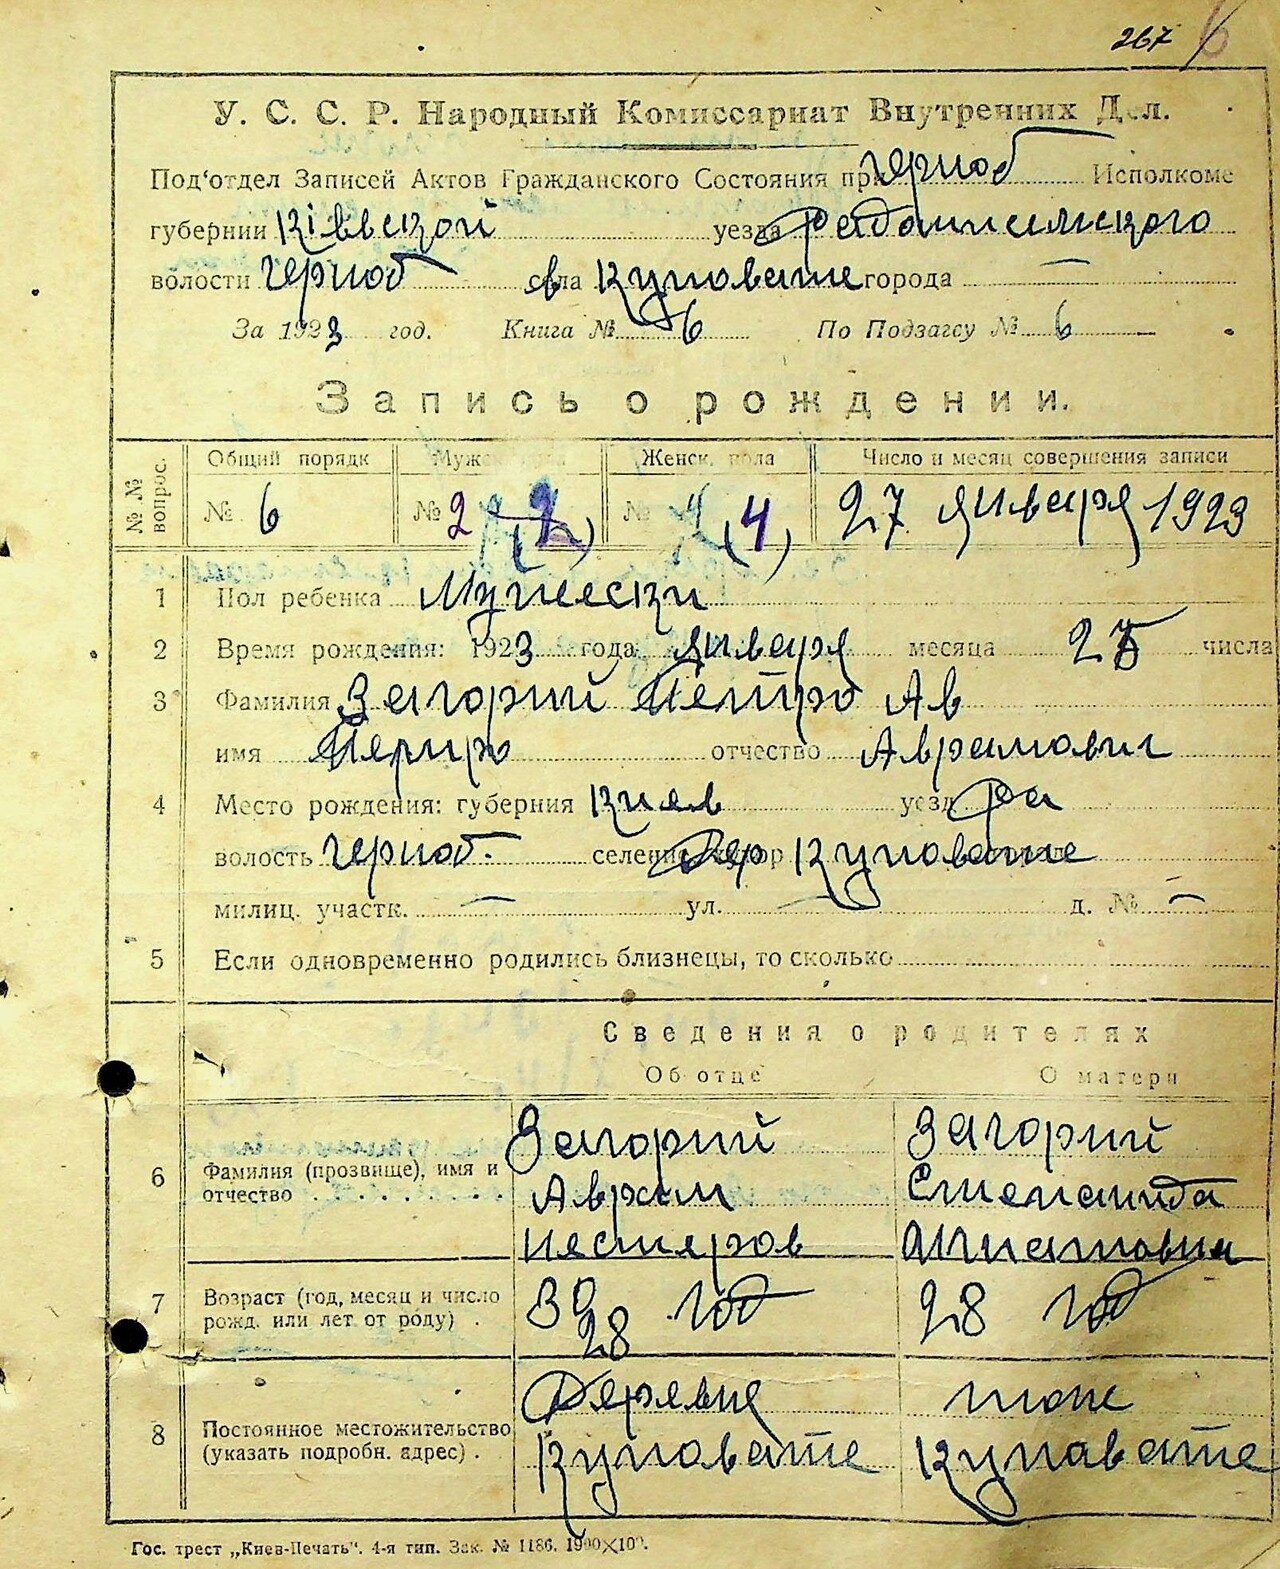 267 6
У. С. С. Р. Народный Комиссариат Внутренних Дел.
Под'отдел Записей Актов Гражданского Состояния при Черноб Исполкоме
губернии Кіевской уезда Радомисльского
волости Черноб села Куповате города —
За 1923 год. Книга № 6 По Подзагсу № 6
Запись о рождении.
№№ вопрос. Общий порядк Мужск. пола Женск. пола Число и месяц совершения записи
№ 6 № 2 (2) № 4 (4) 27 января 1923
1 Пол ребенка Мужески
2 Время рождения: 1923 года января месяца 25 числа
3 Фамилия Загорий Петро Ав
имя Петро отчество Аврамович
4 Место рождения: губерния Киев уезд Ра
волость Черноб. селение Дер Куповате
милиц. участк. — ул. — д. № —
5 Если одновременно родились близнецы, то сколько
Сведения о родителях
Об отце О матери
6 Фамилия (прозвище), имя и отчество Загорий Загорий
Аврам Степанида
Нестеров Игнатовна
7 Возраст (год, месяц и число рожд. или лет от роду) . 30 год 28 год
28
8 Постоянное местожительство (указать подробн. адрес) . Деревня тоже
Куповате Куповате
Гос. трест „Киев-Печать“. 4-я тип. Зак. № 1186. 1900×100.